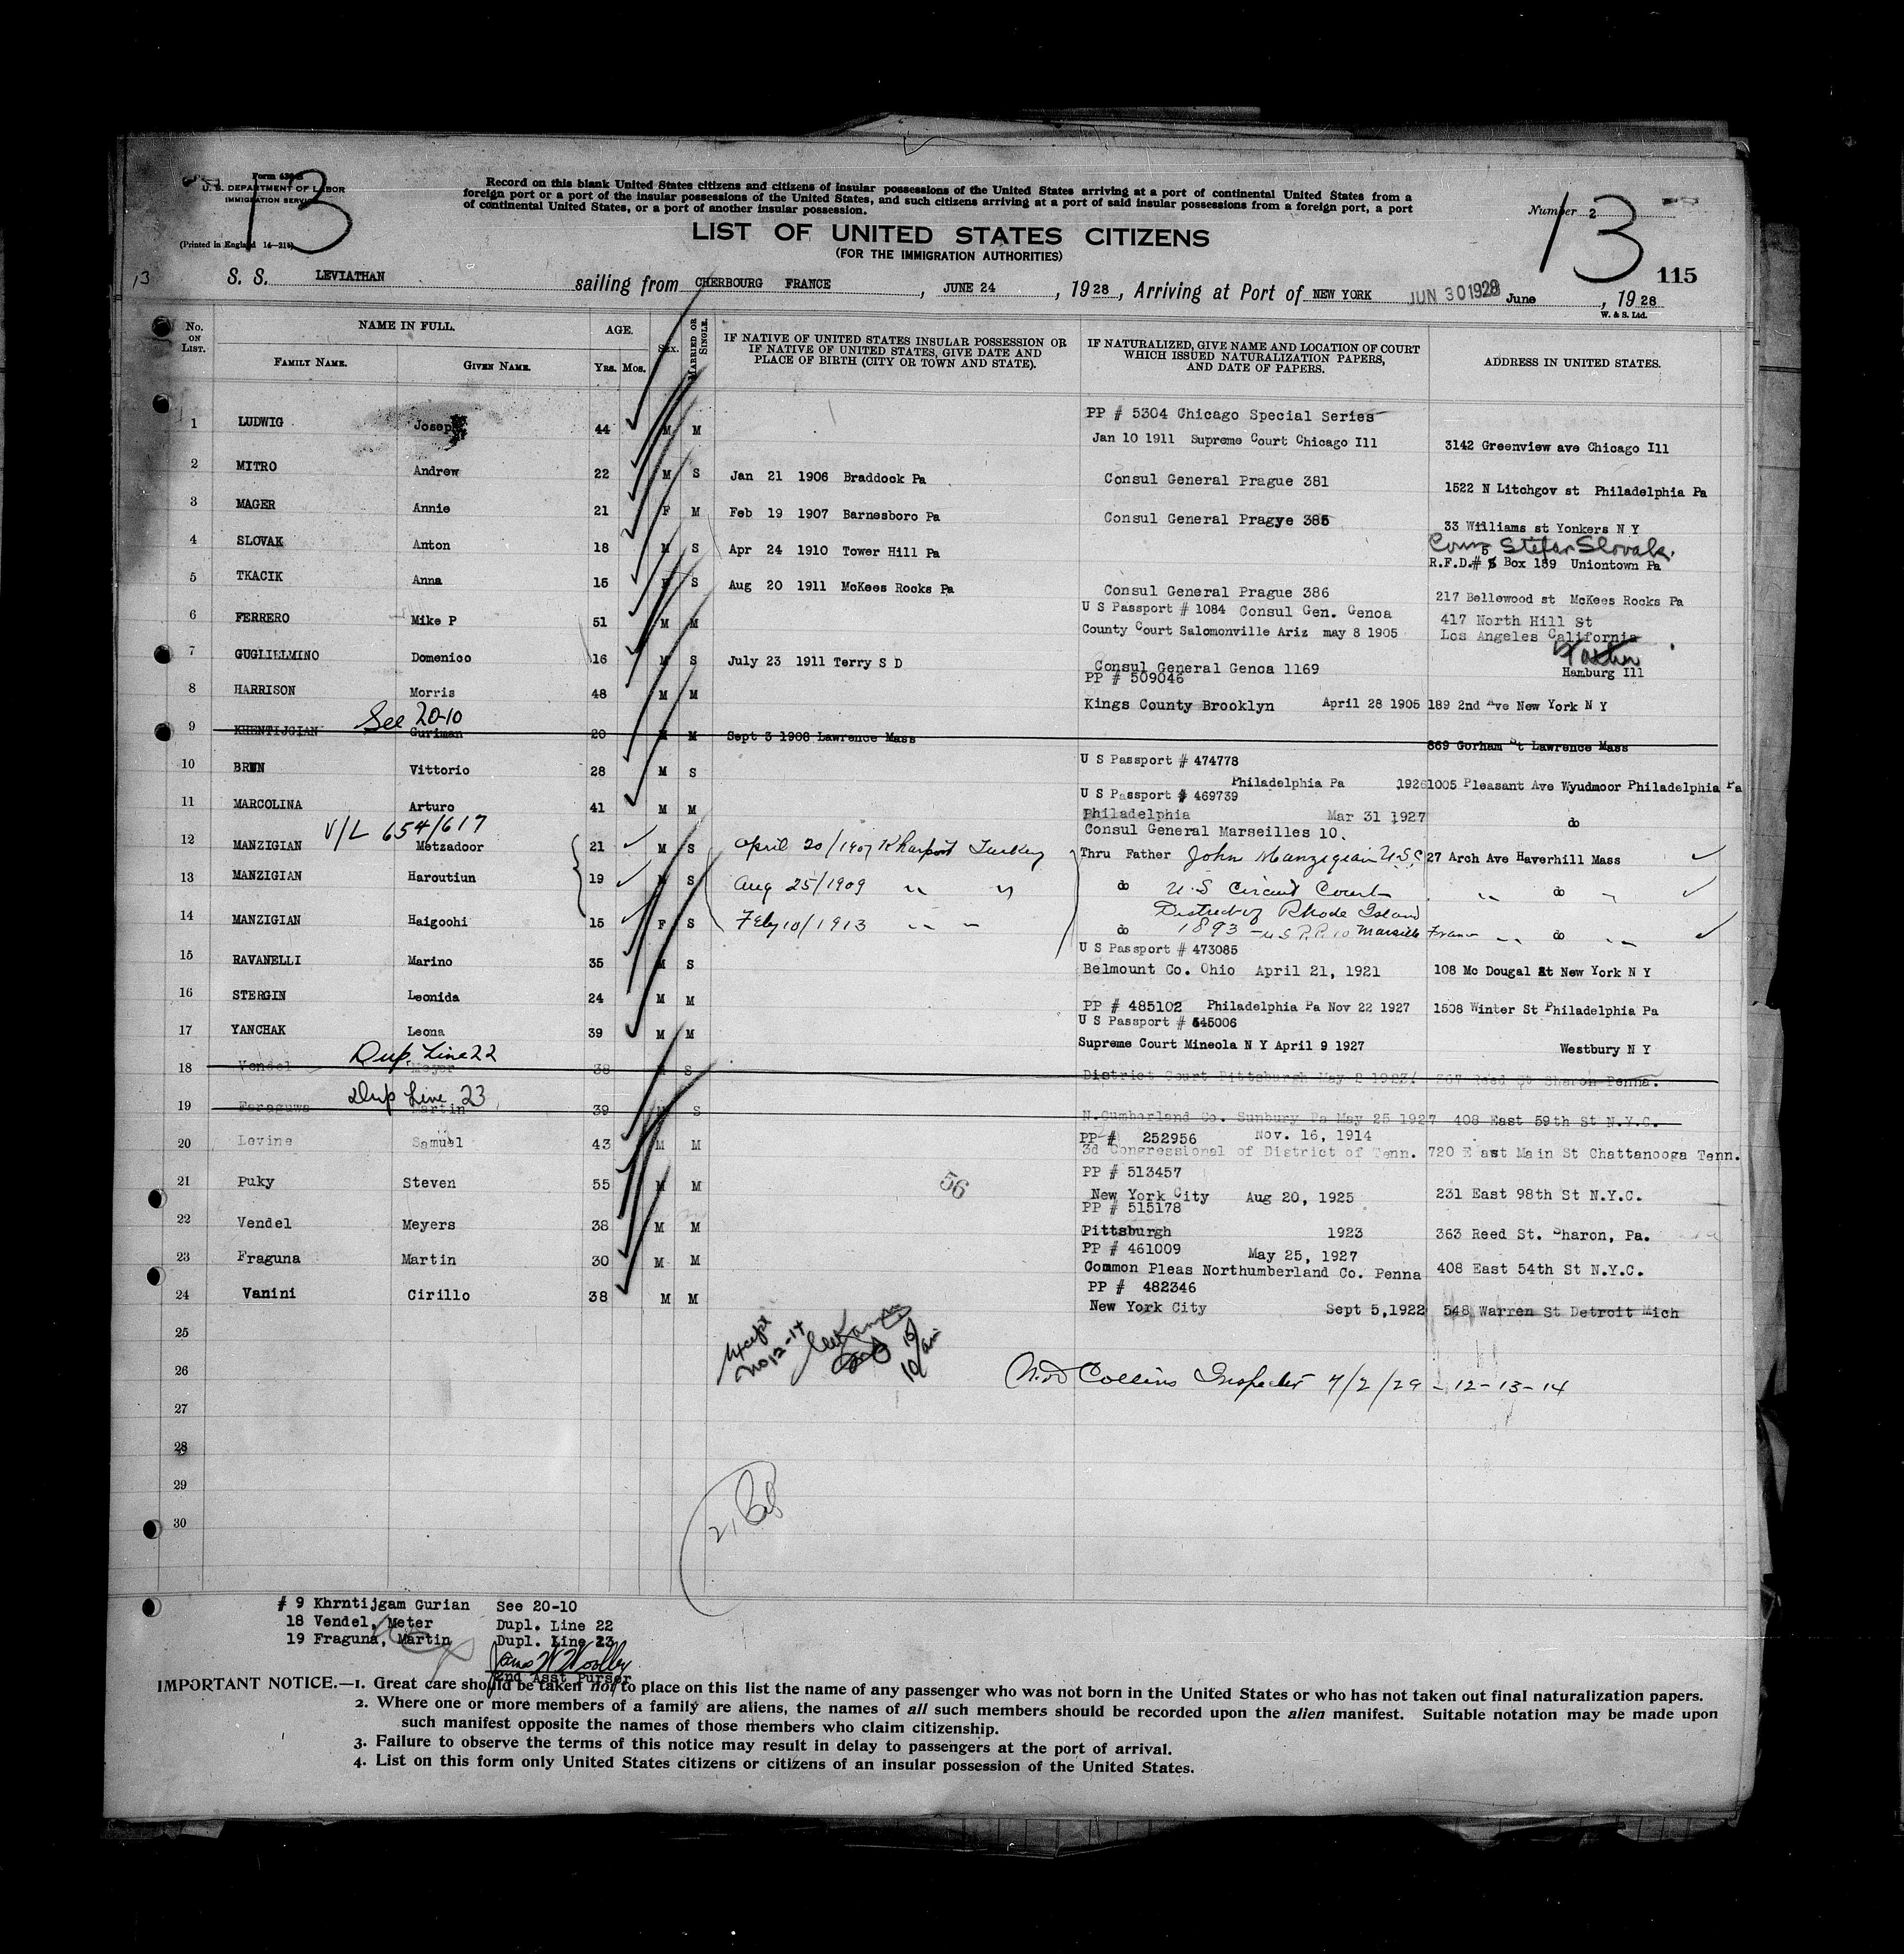 Form 630-B
U. S. DEPARTMENT OF LABOR
IMMIGRATION SERVICE
(Printed in England 14—215)
13
13
13
Record on this blank United States citizens and citizens of insular possessions of the United States arriving at a port of continental United States from a
foreign port or a port of the insular possessions of the United States, and such citizens arriving at a port of said insular possessions from a foreign port, a port
of continental United States, or a port of another insular possession.
Number 2
LIST OF UNITED STATES CITIZENS
(FOR THE IMMIGRATION AUTHORITIES)
115
S. S. LEVIATHAN sailing from CHERBOURG FRANCE, JUNE 24, 1928, Arriving at Port of NEW YORK JUN 30 1928 June, 1928
W. & S. Ltd.
No. ON LIST. NAME IN FULL. FAMILY NAME. GIVEN NAME. AGE. YRS. MOS. SEX. MARRIED OR SINGLE. IF NATIVE OF UNITED STATES INSULAR POSSESSION OR IF NATIVE OF UNITED STATES, GIVE DATE AND PLACE OF BIRTH (CITY OR TOWN AND STATE). IF NATURALIZED, GIVE NAME AND LOCATION OF COURT WHICH ISSUED NATURALIZATION PAPERS, AND DATE OF PAPERS. ADDRESS IN UNITED STATES.
PP # 5304 Chicago Special Series
1 LUDWIG Joseph 44 M M Jan 10 1911 Supreme Court Chicago Ill 3142 Greenview ave Chicago Ill
2 MITRO Andrew 22 M S Jan 21 1906 Braddock Pa Consul General Prague 381 1522 N Litchgov st Philadelphia Pa
3 MAGER Annie 21 F M Feb 19 1907 Barnesboro Pa Consul General Pragye 385 33 Williams st Yonkers N Y
Stefan Slovak.
4 SLOVAK Anton 18 M S Apr 24 1910 Tower Hill Pa R.F.D.# 5 Box 189 Uniontown Pa
5 TKACIK Anna 15 F S Aug 20 1911 McKees Rocks Pa Consul General Prague 386 217 Bellewood st McKees Rocks Pa
U S Passport # 1084 Consul Gen. Genoa 417 North Hill St
6 FERRERO Mike P 51 M M County Court Salomonville Ariz may 8 1905 Los Angeles California
7 GUGLIELMINO Domenico 16 M S July 23 1911 Terry S D Consul General Genoa 1169 Hamburg Ill
PP # 509046
8 HARRISON Morris 48 M M Kings County Brooklyn April 28 1905 189 2nd Ave New York N Y
See 20-10
9 KHENTIJGIAN Guriman 20 M M Sept 3 1908 Lawrence Mass 869 Gorham St Lawrence Mass
U S Passport # 474778
10 BRUN Vittorio 28 M S Philadelphia Pa 1926 1005 Pleasant Ave Wyudmoor Philadelphia Pa
U S Passport # 469739
11 MARCOLINA Arturo 41 M M Philadelphia Mar 31 1927 do
V/L 654/617
Consul General Marseilles 10.
12 MANZIGIAN Metzadoor 21 M S April 20/1907 Kharport Turkey Thru Father John Manzigian U.S.C 27 Arch Ave Haverhill Mass
13 MANZIGIAN Haroutiun 19 M S Aug 25/1909 " " do U.S Circuit Court " do "
District of Rhode Island
14 MANZIGIAN Haigoohi 15 F S Feby 10/1913 " " do 1893 - U S P.P. 10 Marseille France " do "
U S Passport # 473085
15 RAVANELLI Marino 35 M S Belmount Co. Ohio April 21, 1921 108 Mc Dougal St New York N Y
16 STERGIN Leonida 24 M M PP # 485102 Philadelphia Pa Nov 22 1927 1508 Winter St Philadelphia Pa
U S Passport # 545006
17 YANCHAK Leona 39 M M Supreme Court Mineola N Y April 9 1927 Westbury N Y
Dup. Line 22
18 Vendel Meyer 38 M S District Court Pittsburgh May 2 1923 367 Reed St Sharon Penna.
Dup Line 23
19 Faraguwa Martin 39 M S N.Cumberland Co. Sunbury Pa May 25 1927 408 East 59th St N.Y.C.
PP # 252956 Nov. 16, 1914
20 Levine Samuel 43 M M 3d Congressional of District of Tenn. 720 East Main St Chattanooga Tenn.
PP # 513457
21 Puky Steven 55 M M New York City Aug 20, 1925 231 East 98th St N.Y.C.
56
PP # 515178
22 Vendel Meyers 38 M M Pittsburgh 1923 363 Reed St. Sharon, Pa.
PP # 461009 May 25, 1927
23 Fraguna Martin 30 M M Common Pleas Northumberland Co. Penna 408 East 54th St N.Y.C.
PP # 482346
24 Vanini Cirillo 38 M M New York City Sept 5,1922 548 Warren St Detroit Mich
25
Except
No 12-14
26 Collins Inspector 7/2/29 - 12-13-14
27
28
29
30
# 9 Khrntijgam Gurian See 20-10
18 Vendel, Meter Dupl. Line 22
19 Fraguna, Martin Dupl. Line 23
James W Woolley
2nd Asst Purser
IMPORTANT NOTICE.—1. Great care should be taken not to place on this list the name of any passenger who was not born in the United States or who has not taken out final naturalization papers.
2. Where one or more members of a family are aliens, the names of all such members should be recorded upon the alien manifest. Suitable notation may be made upon
such manifest opposite the names of those members who claim citizenship.
3. Failure to observe the terms of this notice may result in delay to passengers at the port of arrival.
4. List on this form only United States citizens or citizens of an insular possession of the United States.